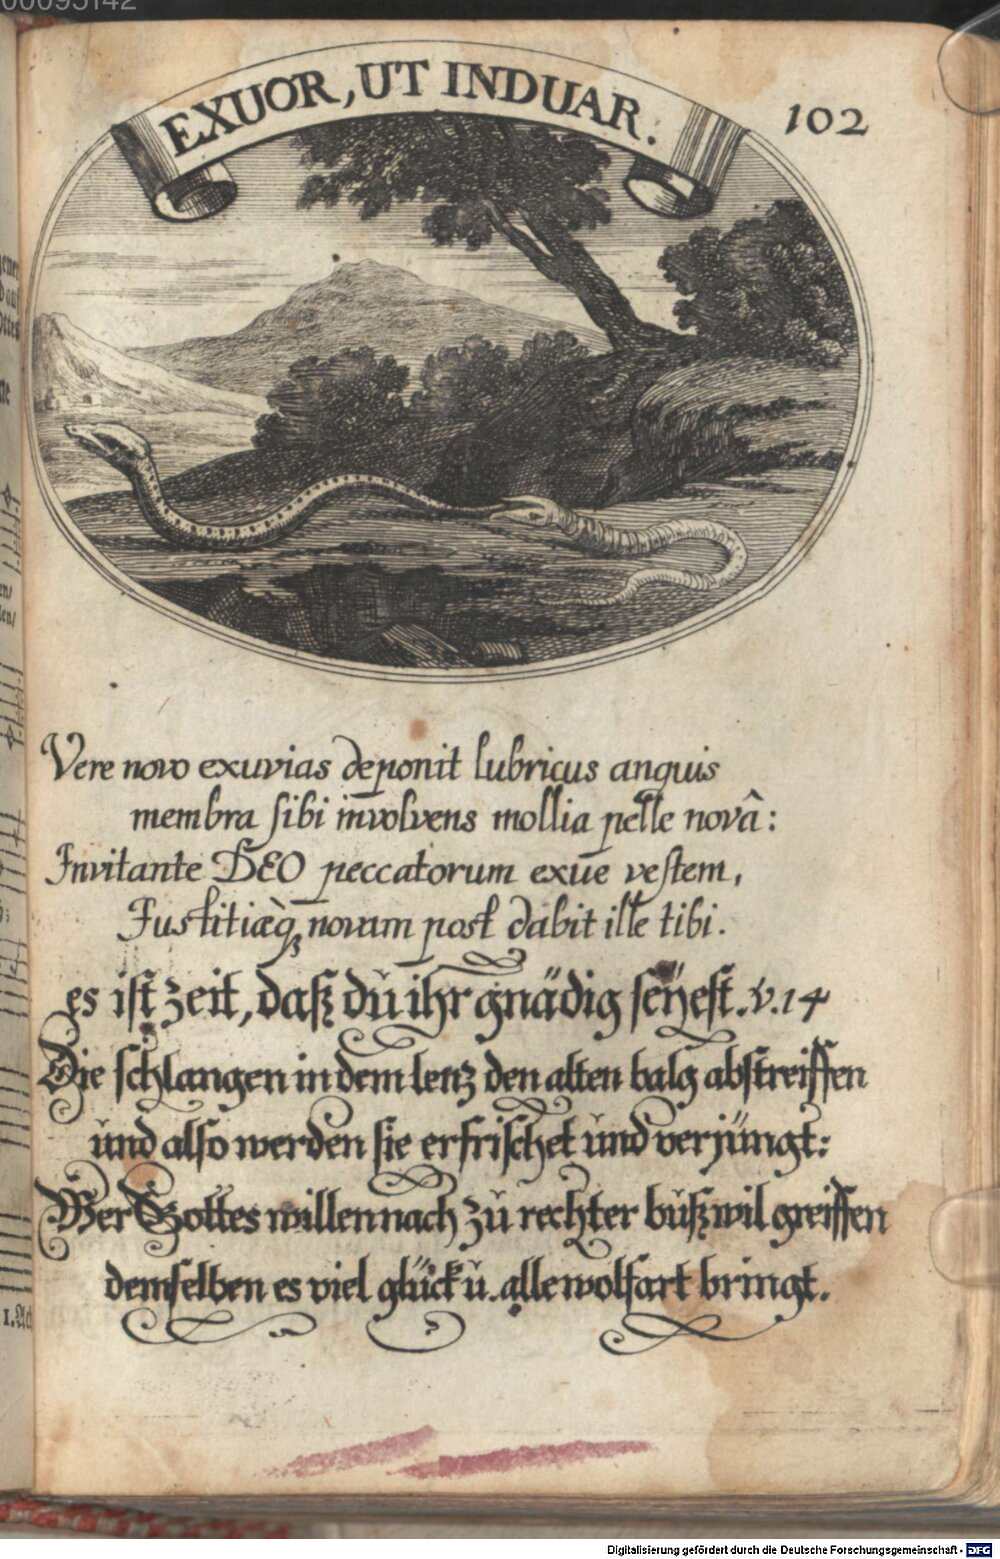 00095142
EXUOR, UT INDUAR.
102
Vere novo exuvias deponit lubricus anguis
membra sibi involvens mollia pelle novâ:
Invitante DEO peccatorum exue vestem,
Justitiæq́ novam post dabit ille tibi.
es ist zeit, daß dŭ ihr gnädig seÿest. v. 14
Die schlangen in dem lenz den alten balg abstreiffen
ŭnd also werden sie erfrischet ŭnd verjüngt:
Wer Gottes willen nach zŭ rechter bŭß wil greiffen
demselben es viel glück ŭ. alle wolfart bringt.
Digitalisierung gefördert durch die Deutsche Forschungsgemeinschaft - DFG